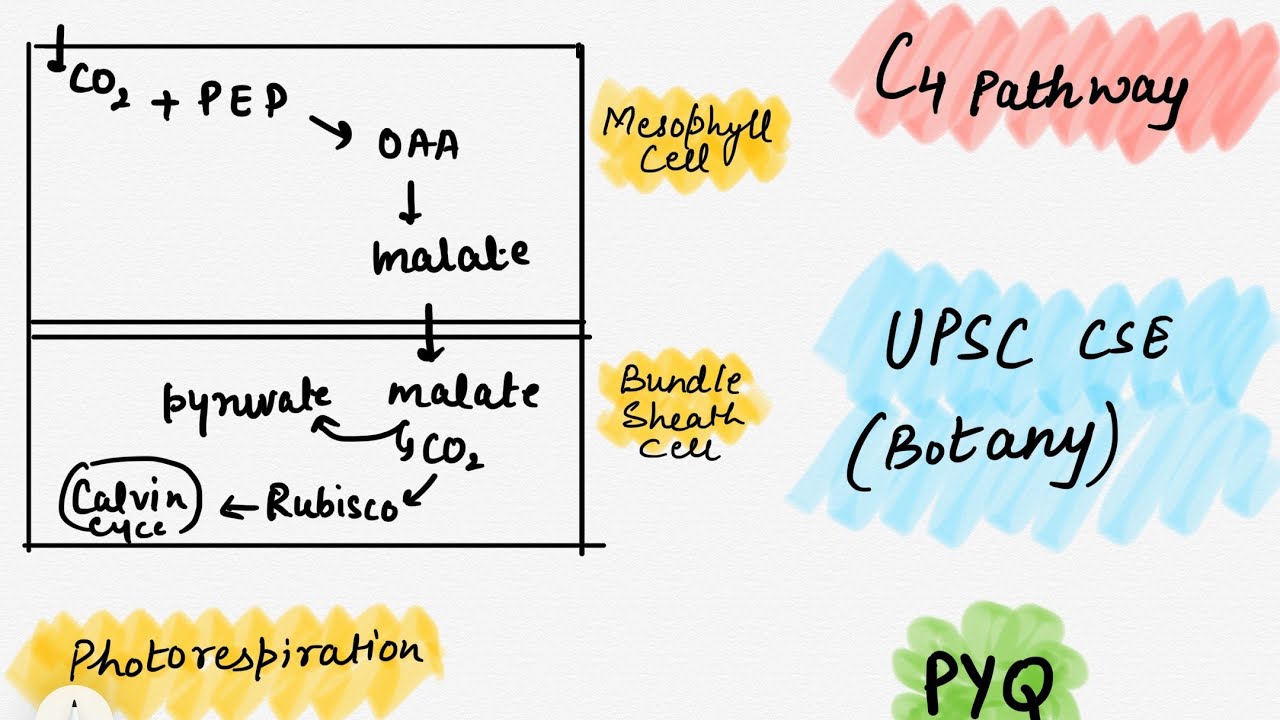 CO2 + PEP
OAA
malate
Mesophyll
Cell
C4 Pathway
pyruvate malate
CO2
Rubisco
Calvin
cyce
Bundle
Sheath
Cell
UPSC CSE
(Botany)
Photorespiration
PYQ